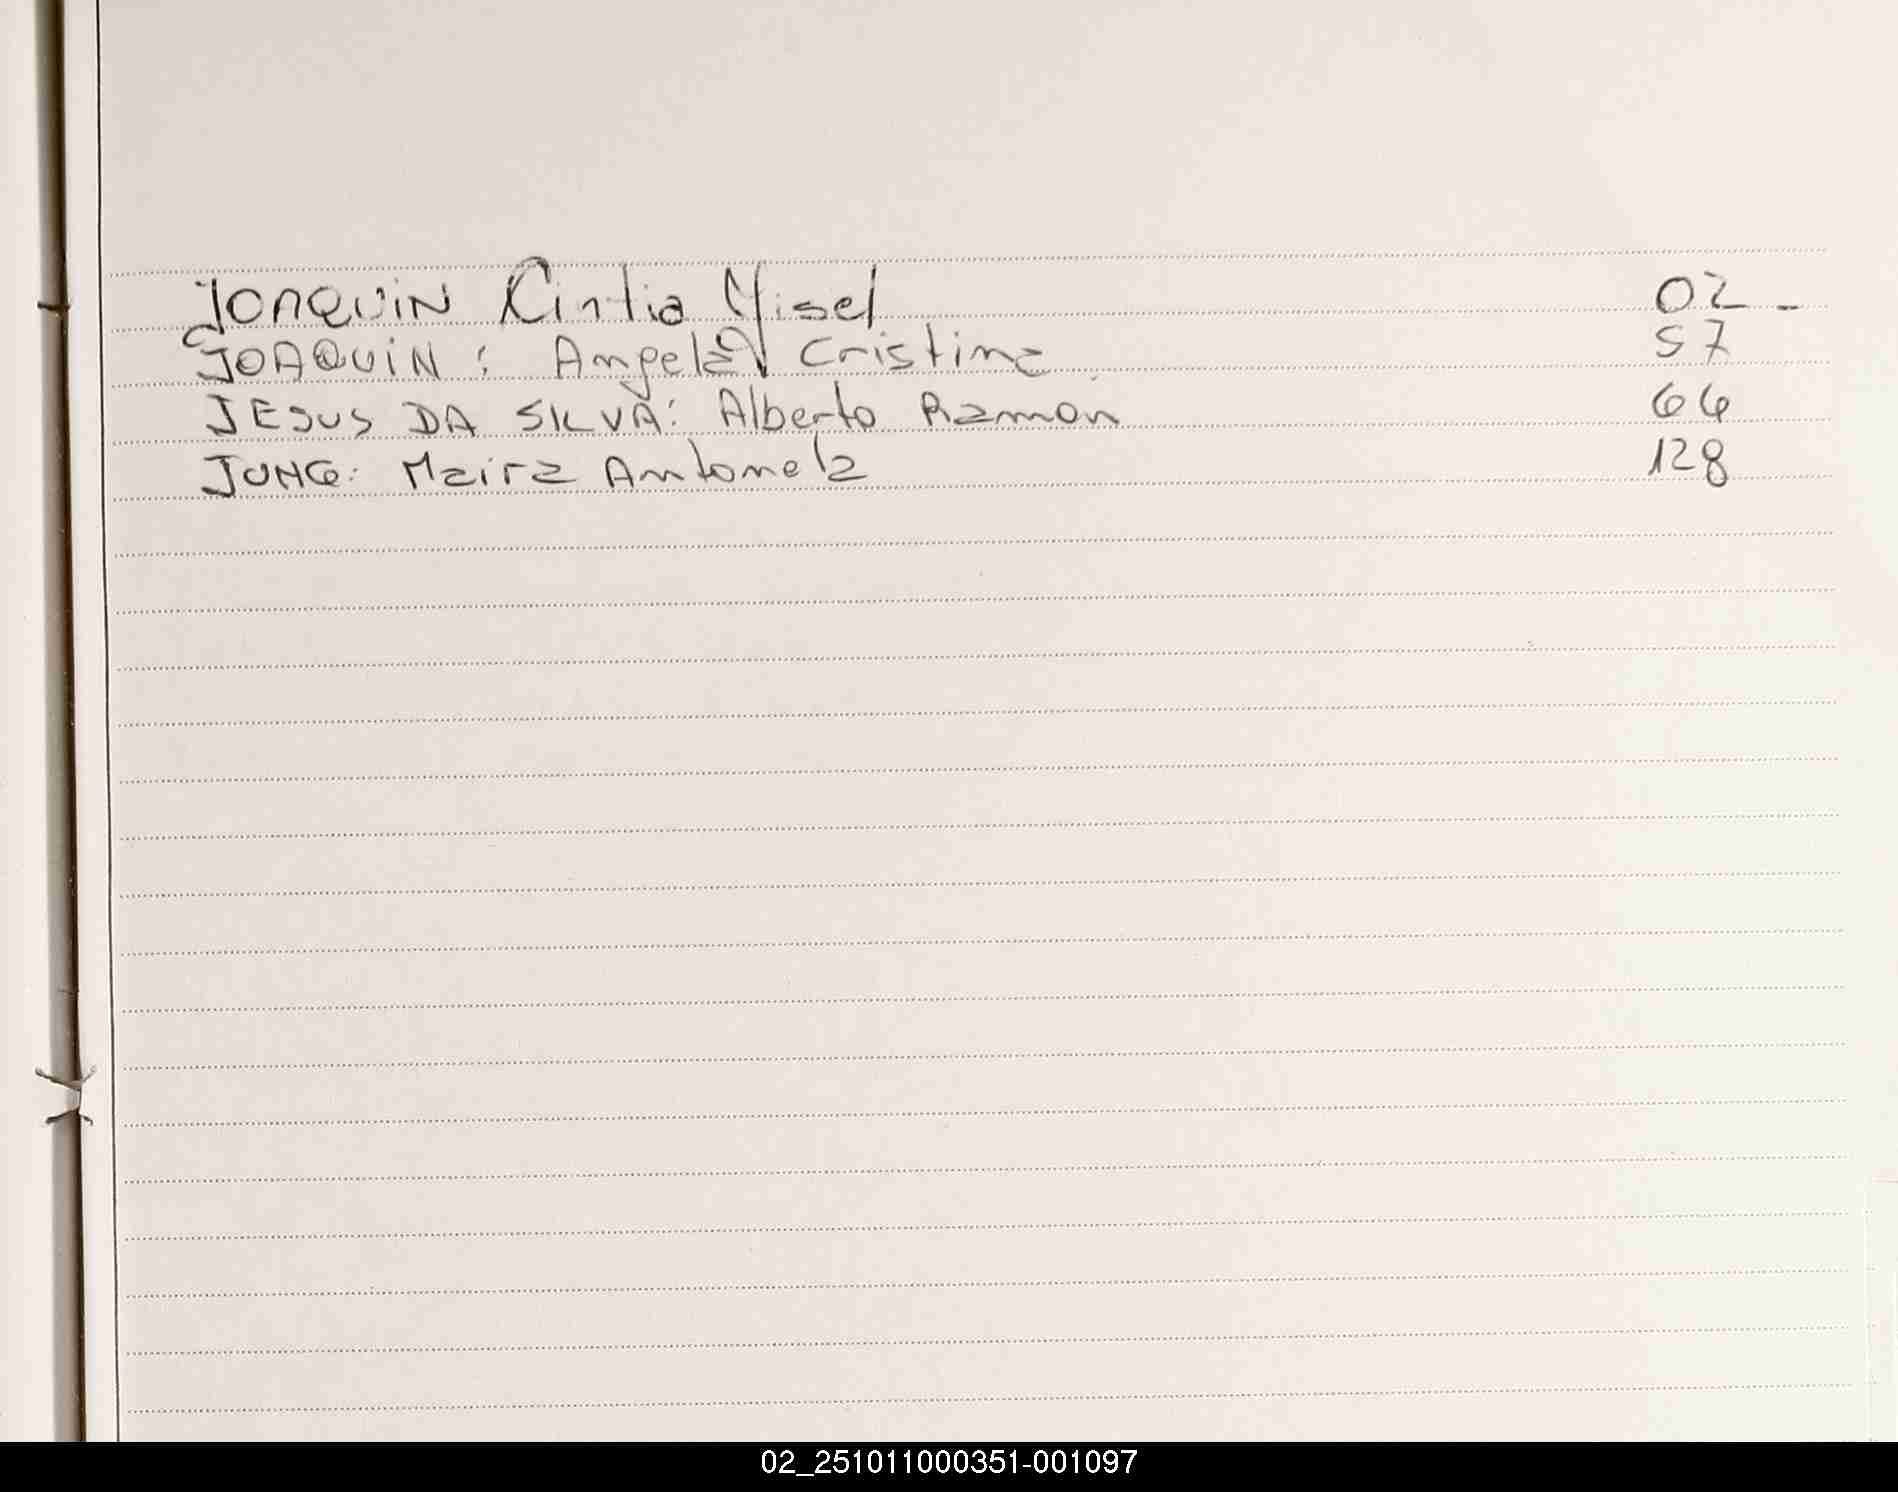 JOAQUIN Cintia Yisel 02 -
JOAQUIN : Angela Cristina 57
JESUS DA SILVA: Alberto Ramon 66
JUNG: Maira Antonela 128
02_251011000351-001097